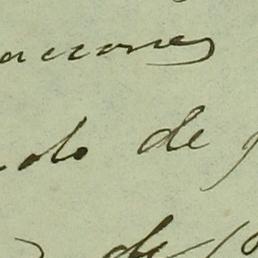 aciones
olo de
de